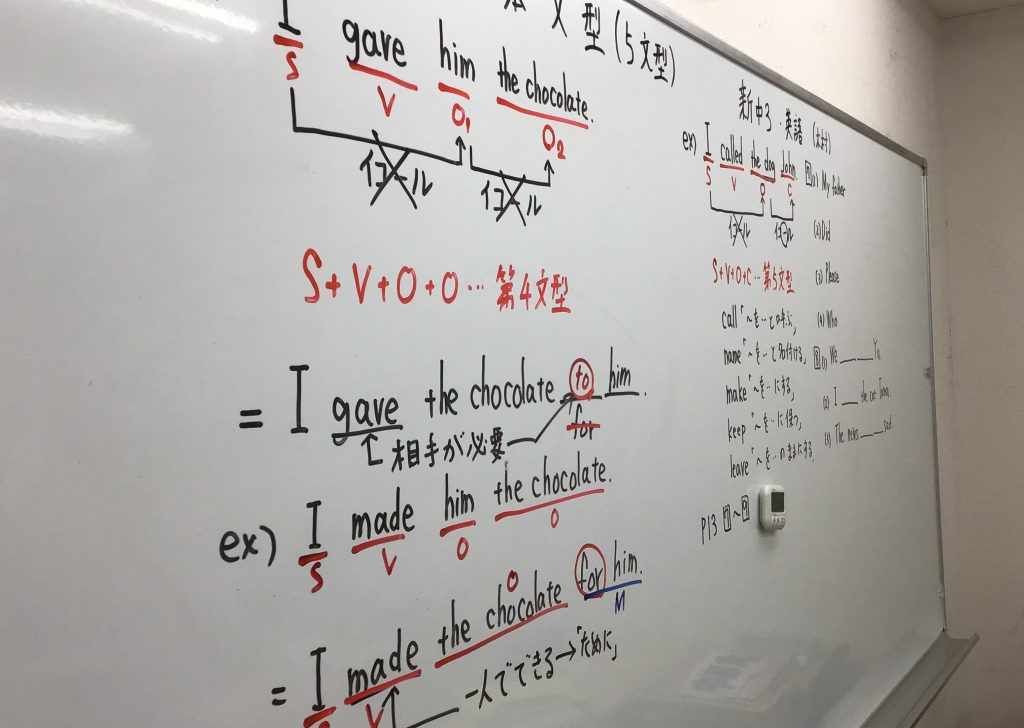 文型(5文型)
I gave him the chocolate.
S V O1 O2
イコール イコール
S+V+O+O…第4文型
= I gave the chocolate to him.
for
相手が必要
ex) I made him the chocolate.
S V O O
= I made the chocolate for him.
S V O M
一人でできる→「ために」
新中3・英語
ex) I called the dog John.
S V O C
イコール イコール
S+V+O+C…第5文型
call「~を…と呼ぶ」
name「~を…と名付ける」
make「~を…にする」
keep「~を…に保つ」
leave「~を…のままにする」
P13 1~9
(1) My father
(2) Did
(3) Please
(4) Who
(1) We ____ Yu
(2) I ____ the cat
(3) The news ____ sad.